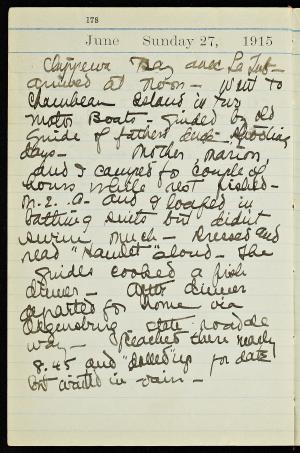 178
June Sunday 27, 1915
Chippewa Bay and La Tub-
arrived at noon - went to
Chambean Island in two
Moto Boats - guided by old
guide of fathers duck shooting
days - Mother, Marion,
and I camped for couple of
hours while rest fished -
M. L. A. and I loafed in
bathing suits but didn't
swim much - Dressed and
read "Hamlet" aloud - The
guides cooked a fish
dinner - After dinner
departed for home via
Ogdensburg state roadde
way - Reached there nearly
8.45 and "dolled" up for date
but waited in vain -